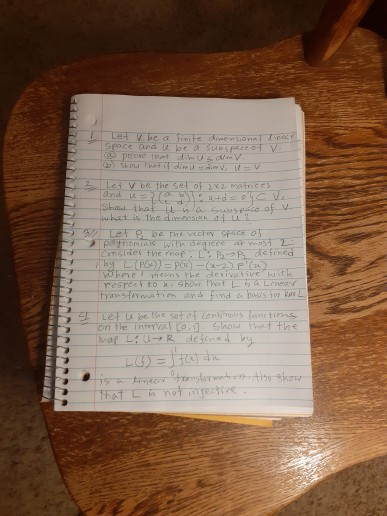 1. Let V be a finite dimensional linear
space and U be a subspace of V.
(a) prove that dim U ≤ dim V
(b) show that if dim U = dim V, U = V
2. Let V be the set of 2x2 matrices
and U = {(a b; c d) : a+d=0} ⊂ V.
Show that U is a subspace of V
what is the dimension of U?
3. Let P₂ be the vector space of
polynomials with degree at most 2
Consider the map, L: P₂→P₂ defined
by L(P(x)) = P(x) - (x-2) P'(x)
where ' means the derivative with
respect to x. Show that L is a linear
transformation and find a basis for ker L
Let U be the set of continous functions
on the interval [0,1]. Show that the
map L: U→R defined by
L(f) = ∫₀¹ f(x) dx
is a linear transformation. Also show
that L is not injective.